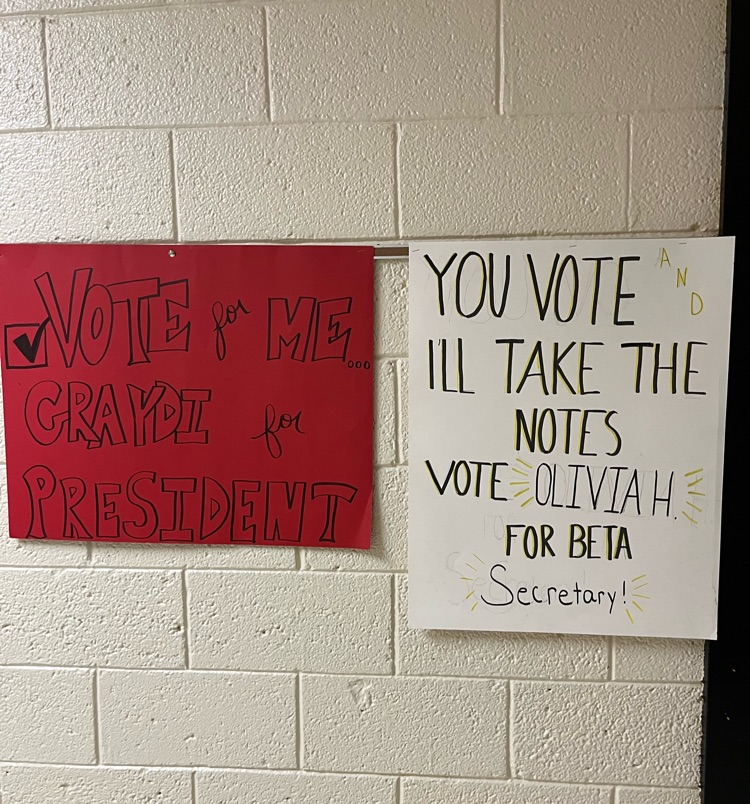 VOTE for ME...
GRAYDI for
PRESIDENT
YOU VOTE AND
I'LL TAKE THE
NOTES
VOTE OLIVIA H.
FOR BETA
Secretary!